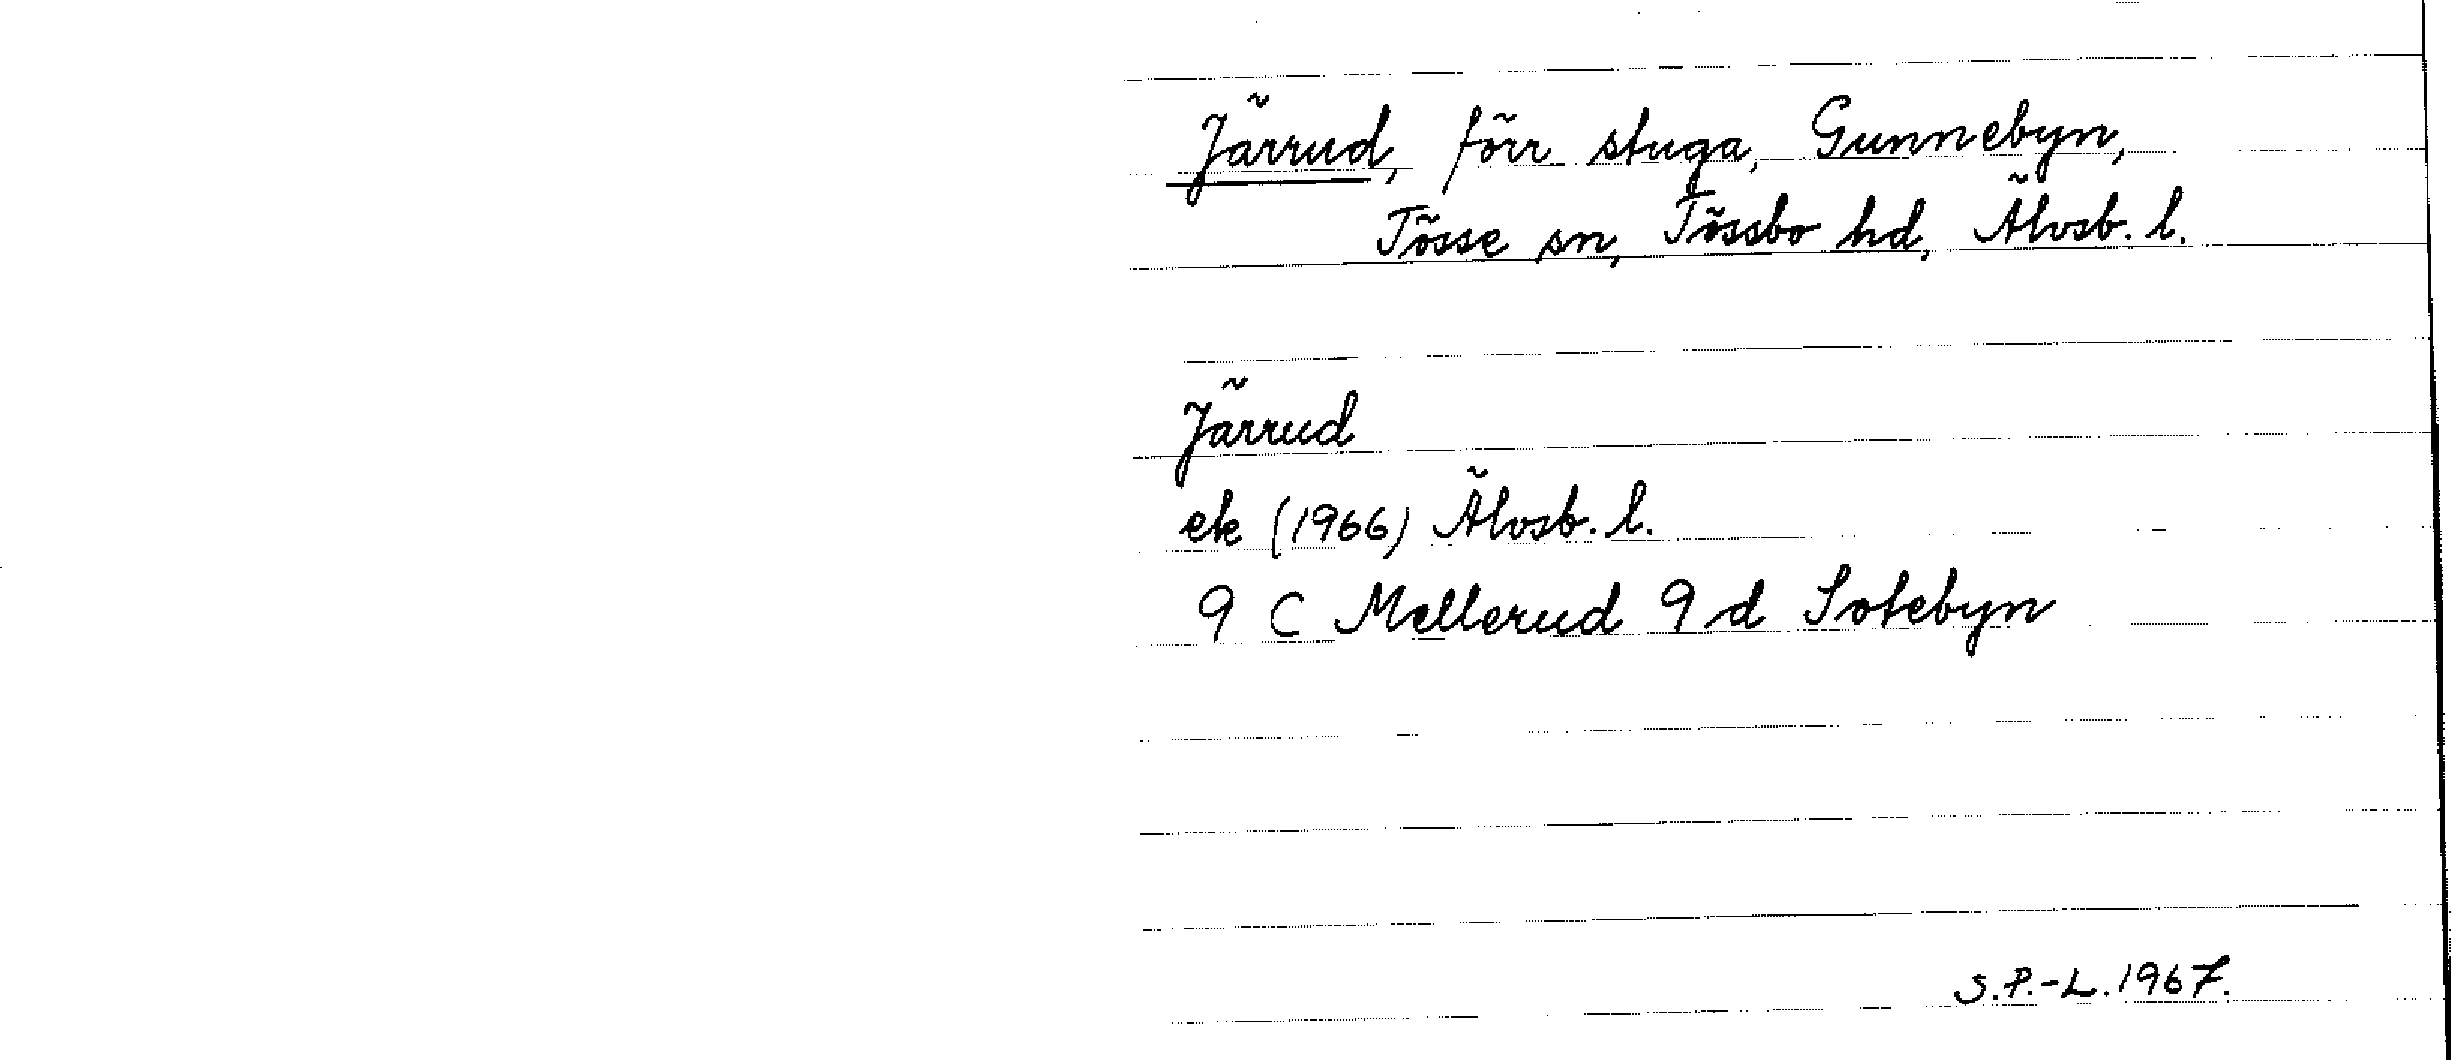 Järrud, förr stuga, Gunnebyn,
Tösse sn, Tössbo hd, Älvsb. l.
Järrud
ek (1966) Älvsb. l.
9 C Mellerud 9 d Sotebyn
S.P.-L. 1967.